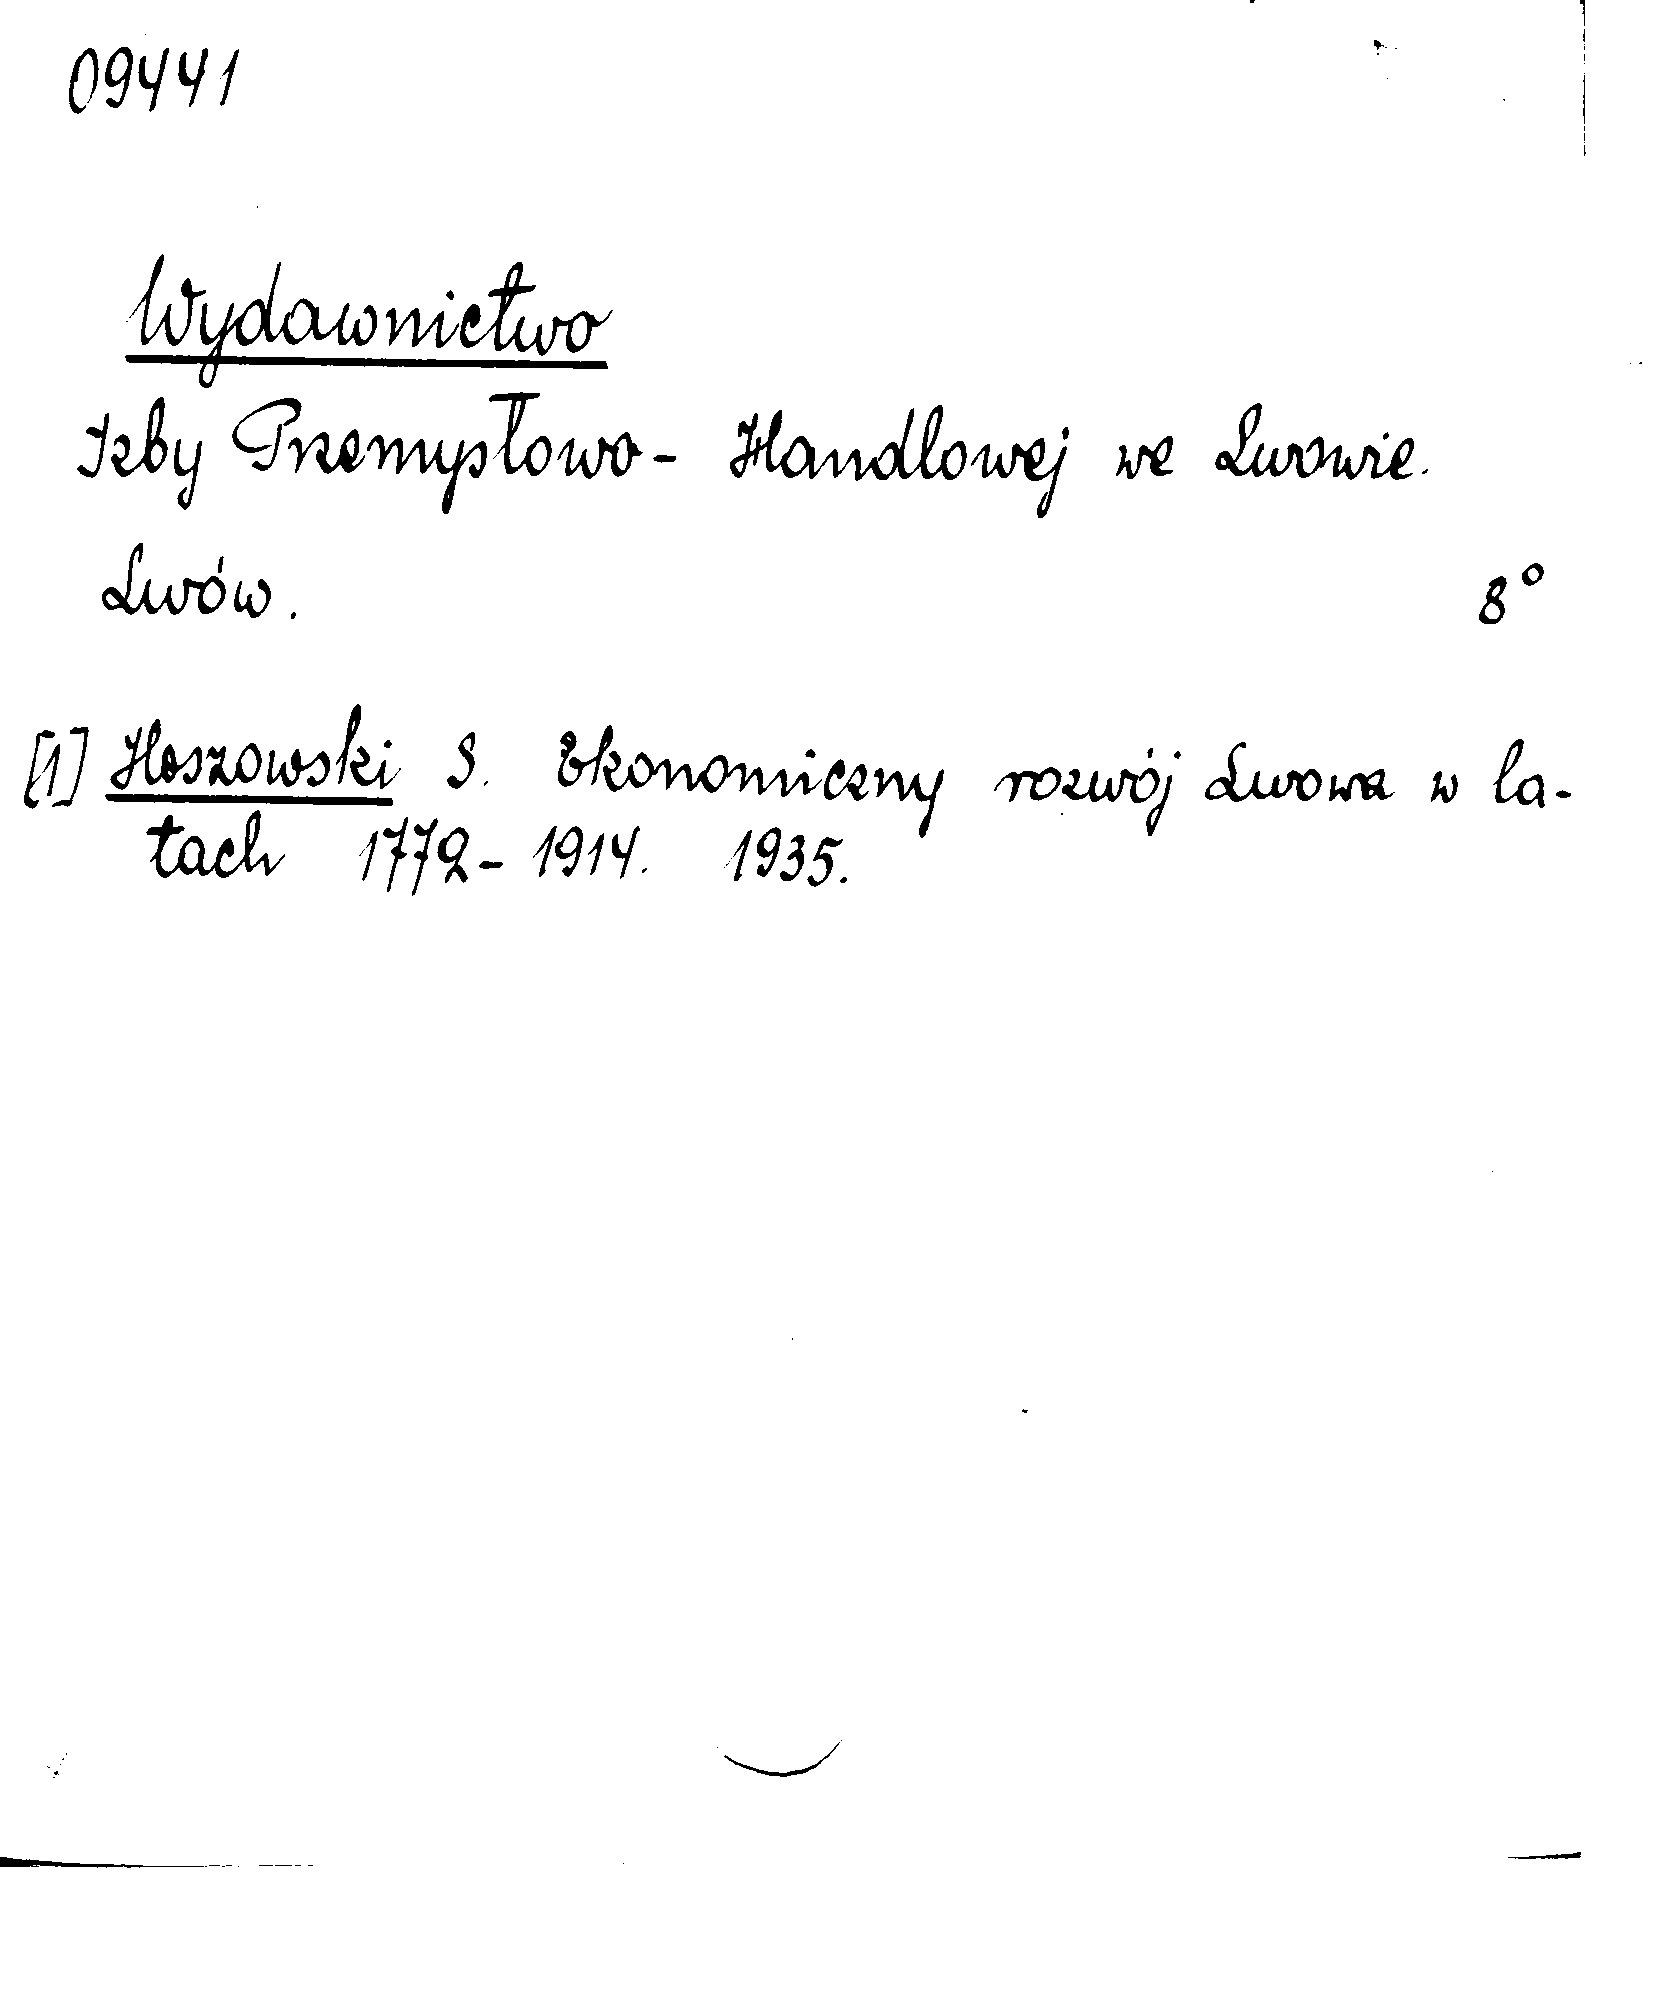 09441
Wydawnictwo
Izby Przemysłowo- Handlowej we Lwowie.
Lwów. 8°
[1] Hoszowski S. Ekonomiczny rozwój Lwowa w la-
tach 1772-1914. 1935.